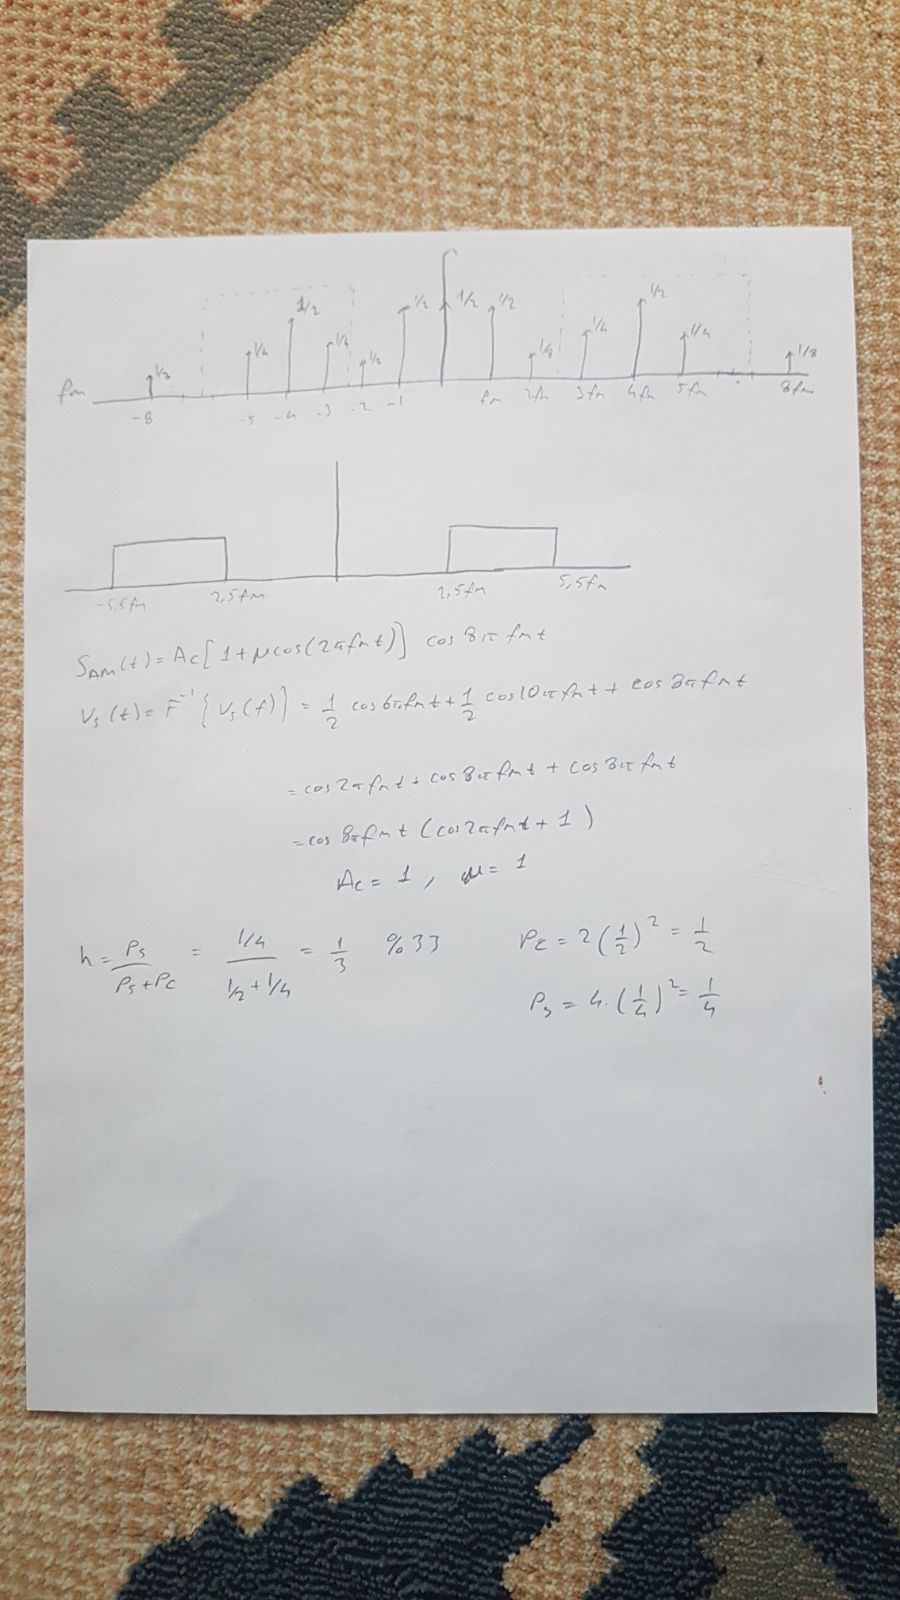 1/8 1/4 1/2 1/4 1/8 1/2 1/2 1/2 1/8 1/4 1/2 1/4 1/8
fm -8 -5 -4 -3 -2 -1 fm 2fm 3fm 4fm 5fm 8fm
-5,5fm 2,5fm 2,5fm 5,5fm
S_AM(t) = Ac[1+μcos(2πfmt)] cos 8π fmt
Vs(t) = F⁻¹{Vs(f)} = 1/2 cos6πfmt + 1/2 cos10πfmt + cos8πfmt
= cos2πfmt . cos8πfmt + cos8πfmt
= cos8πfmt (cos2πfmt + 1)
Ac = 1, μ = 1
h = Ps/(Ps+Pc) = (1/4)/(1/2+1/4) = 1/3 %33
Pc = 2(1/2)² = 1/2
Ps = 4.(1/4)² = 1/4